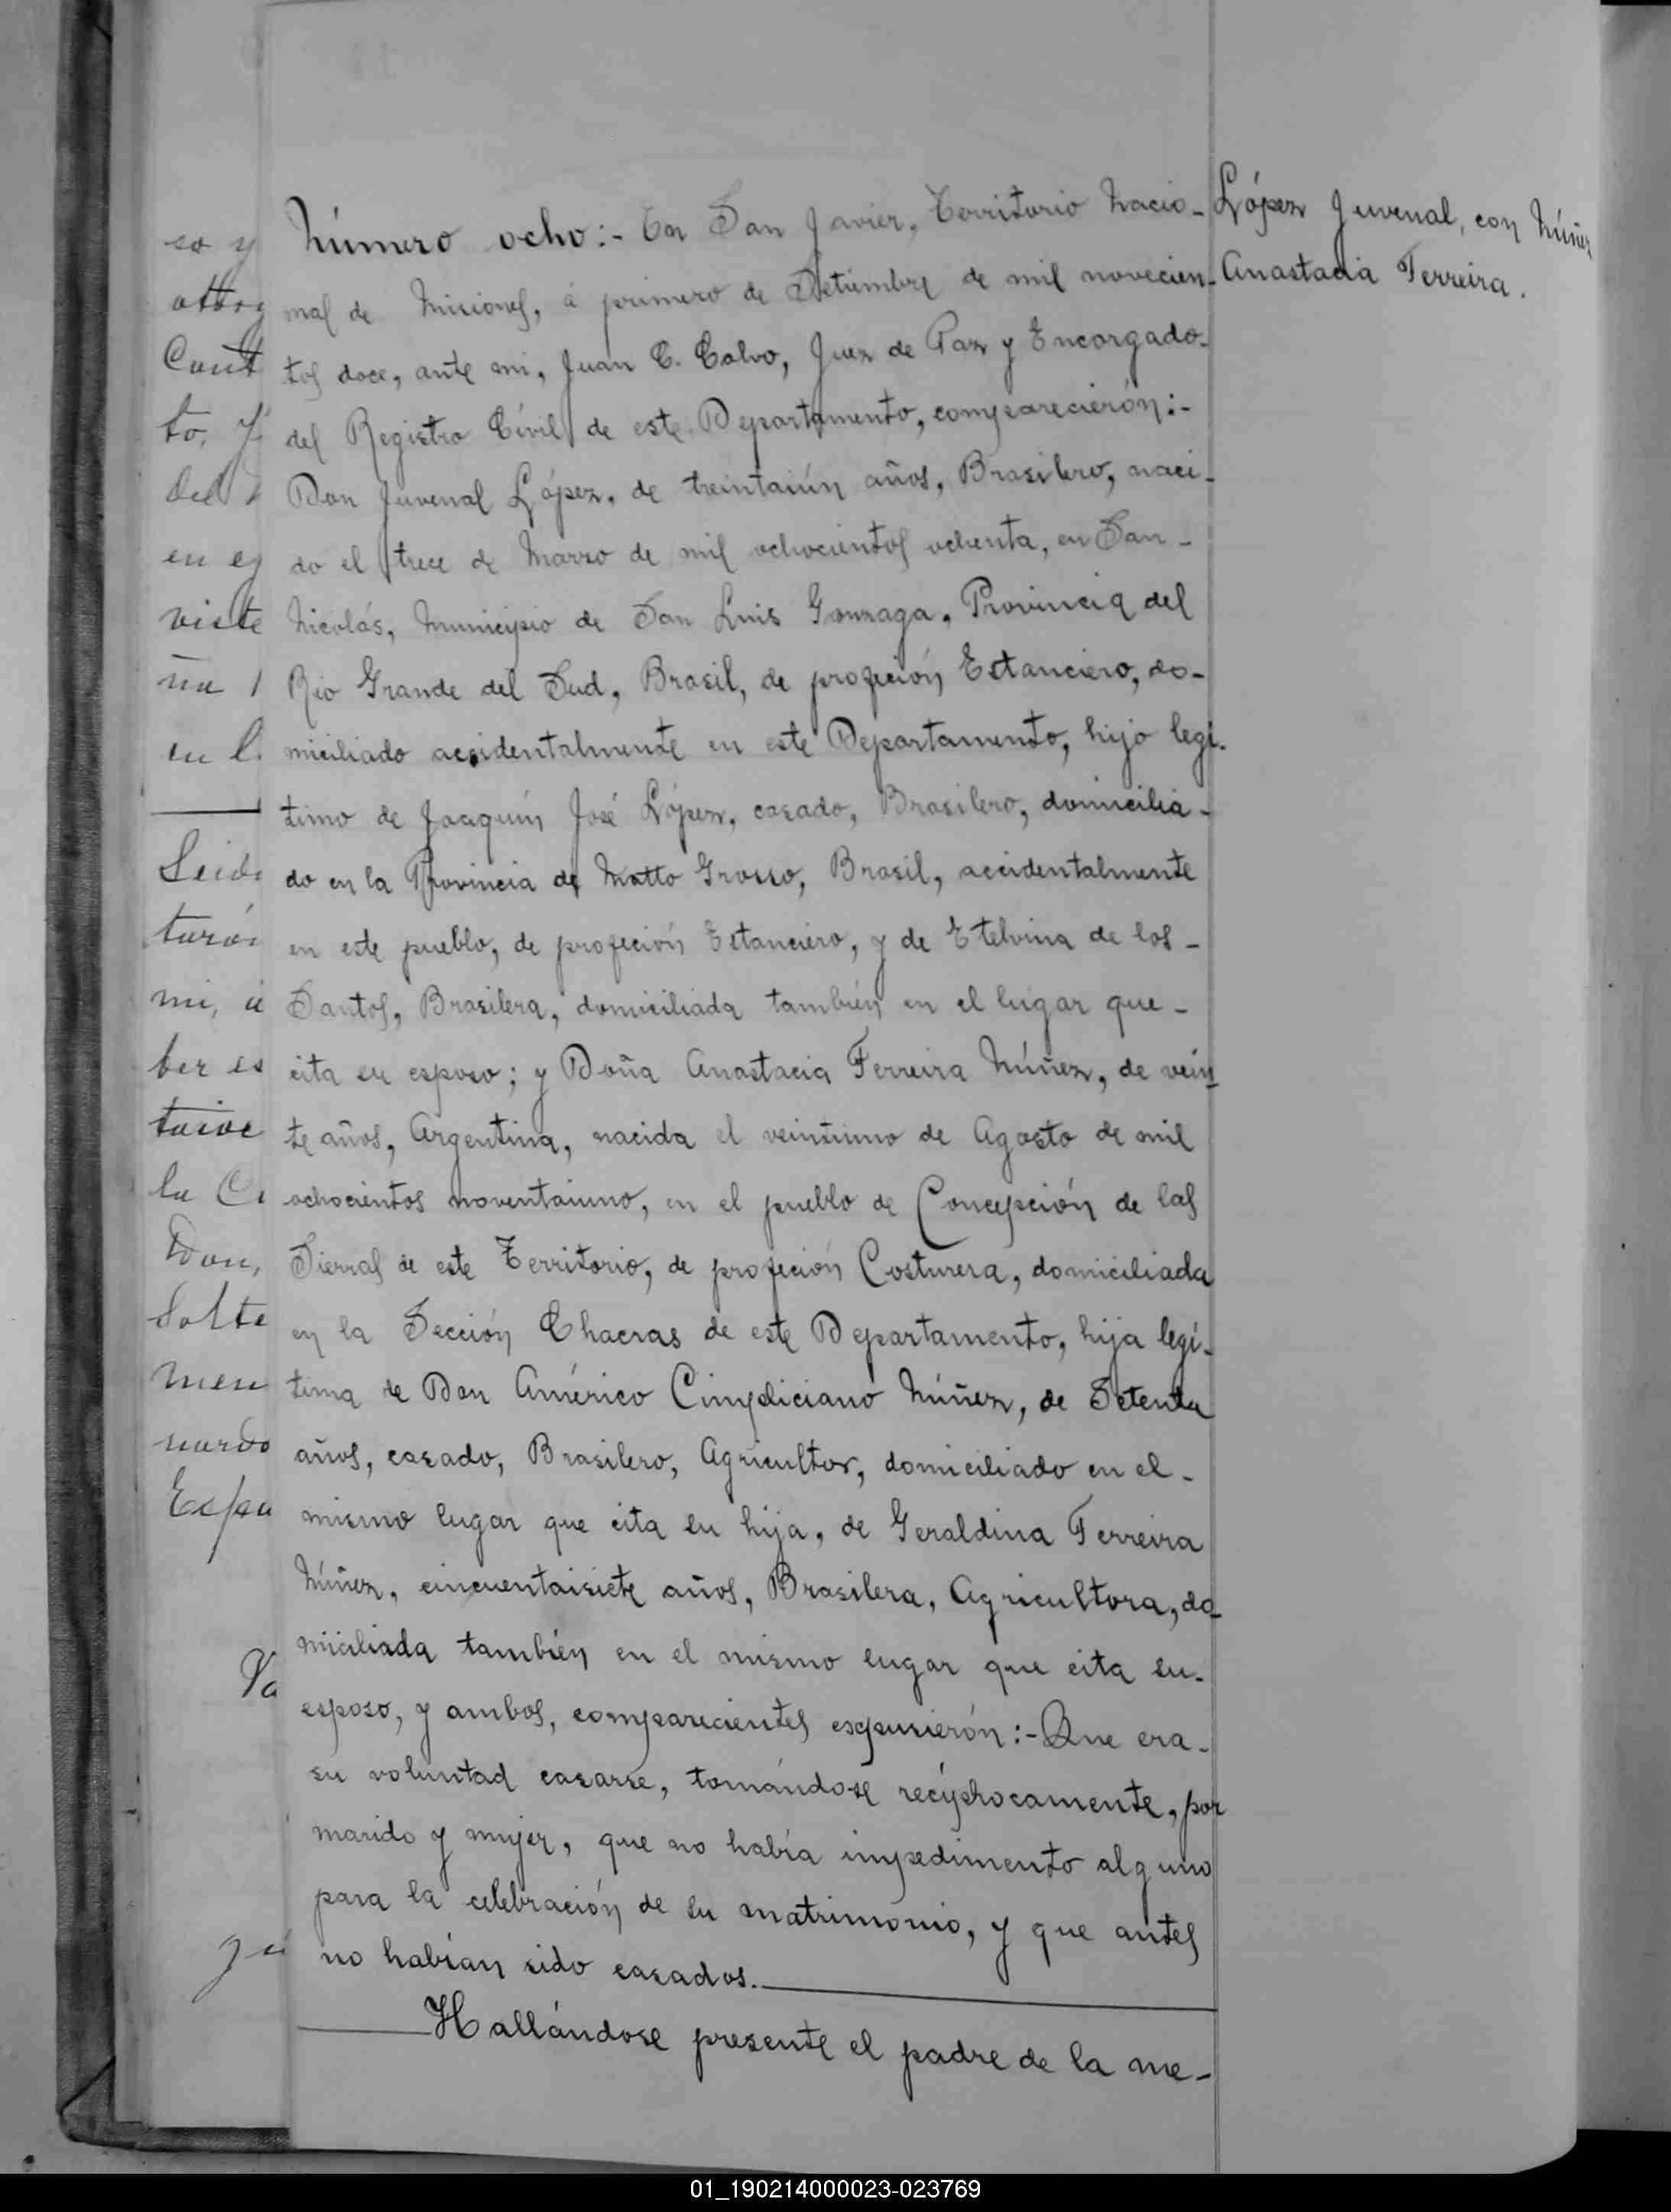 López Juvenal, con Núñez
Anastacia Ferreira.
Número ocho:- En San Javier, Territorio Nacio-
nal de Misiones, á primero de Setiembre de mil novecien-
tos doce, ante mi, Juan C. Calvo, Juez de Paz y Encargado-
del Registro Cívil de este Departamento, comparecierón:-
Don Juvenal López, de treintaiún años, Brasilero, naci-
do el trece de Marzo de mil ochocientos ochenta, en San-
Nicolás, Municipio de San Luis Gonzaga, Provincia del
Rio Grande del Sud, Brasil, de profeción Estanciero, do-
miciliado accidentalmente en este Departamento, hijo legi-
timo de Joaquín José López, casado, Brasilero, domicilia-
do en la Provincia de Matto Grosso, Brasil, accidentalmente
en este pueblo, de profeción Estanciero, y de Etelvina de los-
Santos, Brasilera, domiciliada también en el lugar que-
cita su esposo; y Doña Anastacia Ferreira Núñez, de vein-
te años, Argentina, nacida el veintiuno de Agosto de mil
ochocientos noventaiuno, en el pueblo de Concepción de las
Sierras de este Territorio, de profeción Costurera, domiciliada
en la Sección Chacras de este Departamento, hija legí-
tima de Don Américo Cimpliciano Núñez, de Setenta
años, casado, Brasilero, Agricultor, domiciliado en el-
mismo lugar que cita su hija, de Geraldina Ferreira
Núñez, cincuentaisiete años, Brasilera, Agricultora, do-
miciliada también en el mismo lugar que cita su-
esposo, y ambos, comparecientes expusierón:- Que era-
su voluntad casarse, tomándose recíprocamente, por
marido y mujer, que no había impedimento alguno
para la celebración de su matrimonio, y que antes
no habían sido casados.
Hallándose presente el padre de la me-
01_190214000023-023769